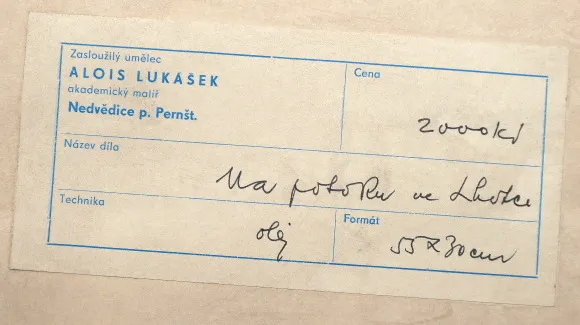 Zasloužilý umělec
ALOIS LUKÁŠEK
akademický malíř
Nedvědice p. Pernšt.
Cena
2000 kčs
Název díla
Na potoku ve Lhotce
Technika
olej
Formát
55 x 30 cm